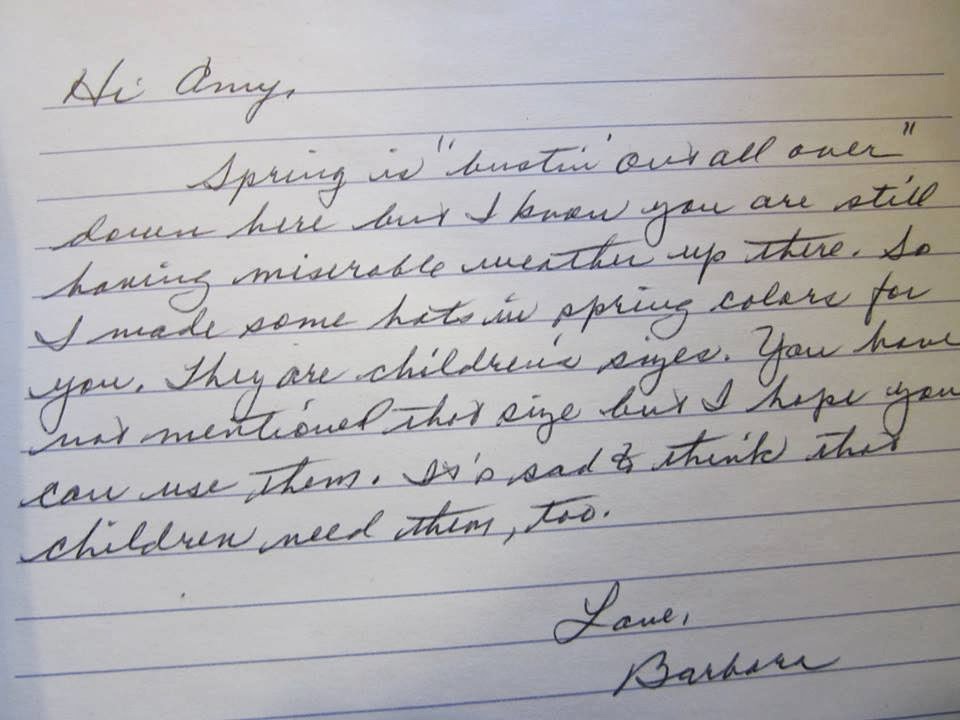 Hi Amy,
Spring is "bustin' out all over"
down here but I know you are still
having miserable weather up there. So
I made some hats in spring colors for
you. They are children's sizes. You have
not mentioned that size but I hope you
can use them. It's sad to think that
children need them, too.
Love,
Barbara